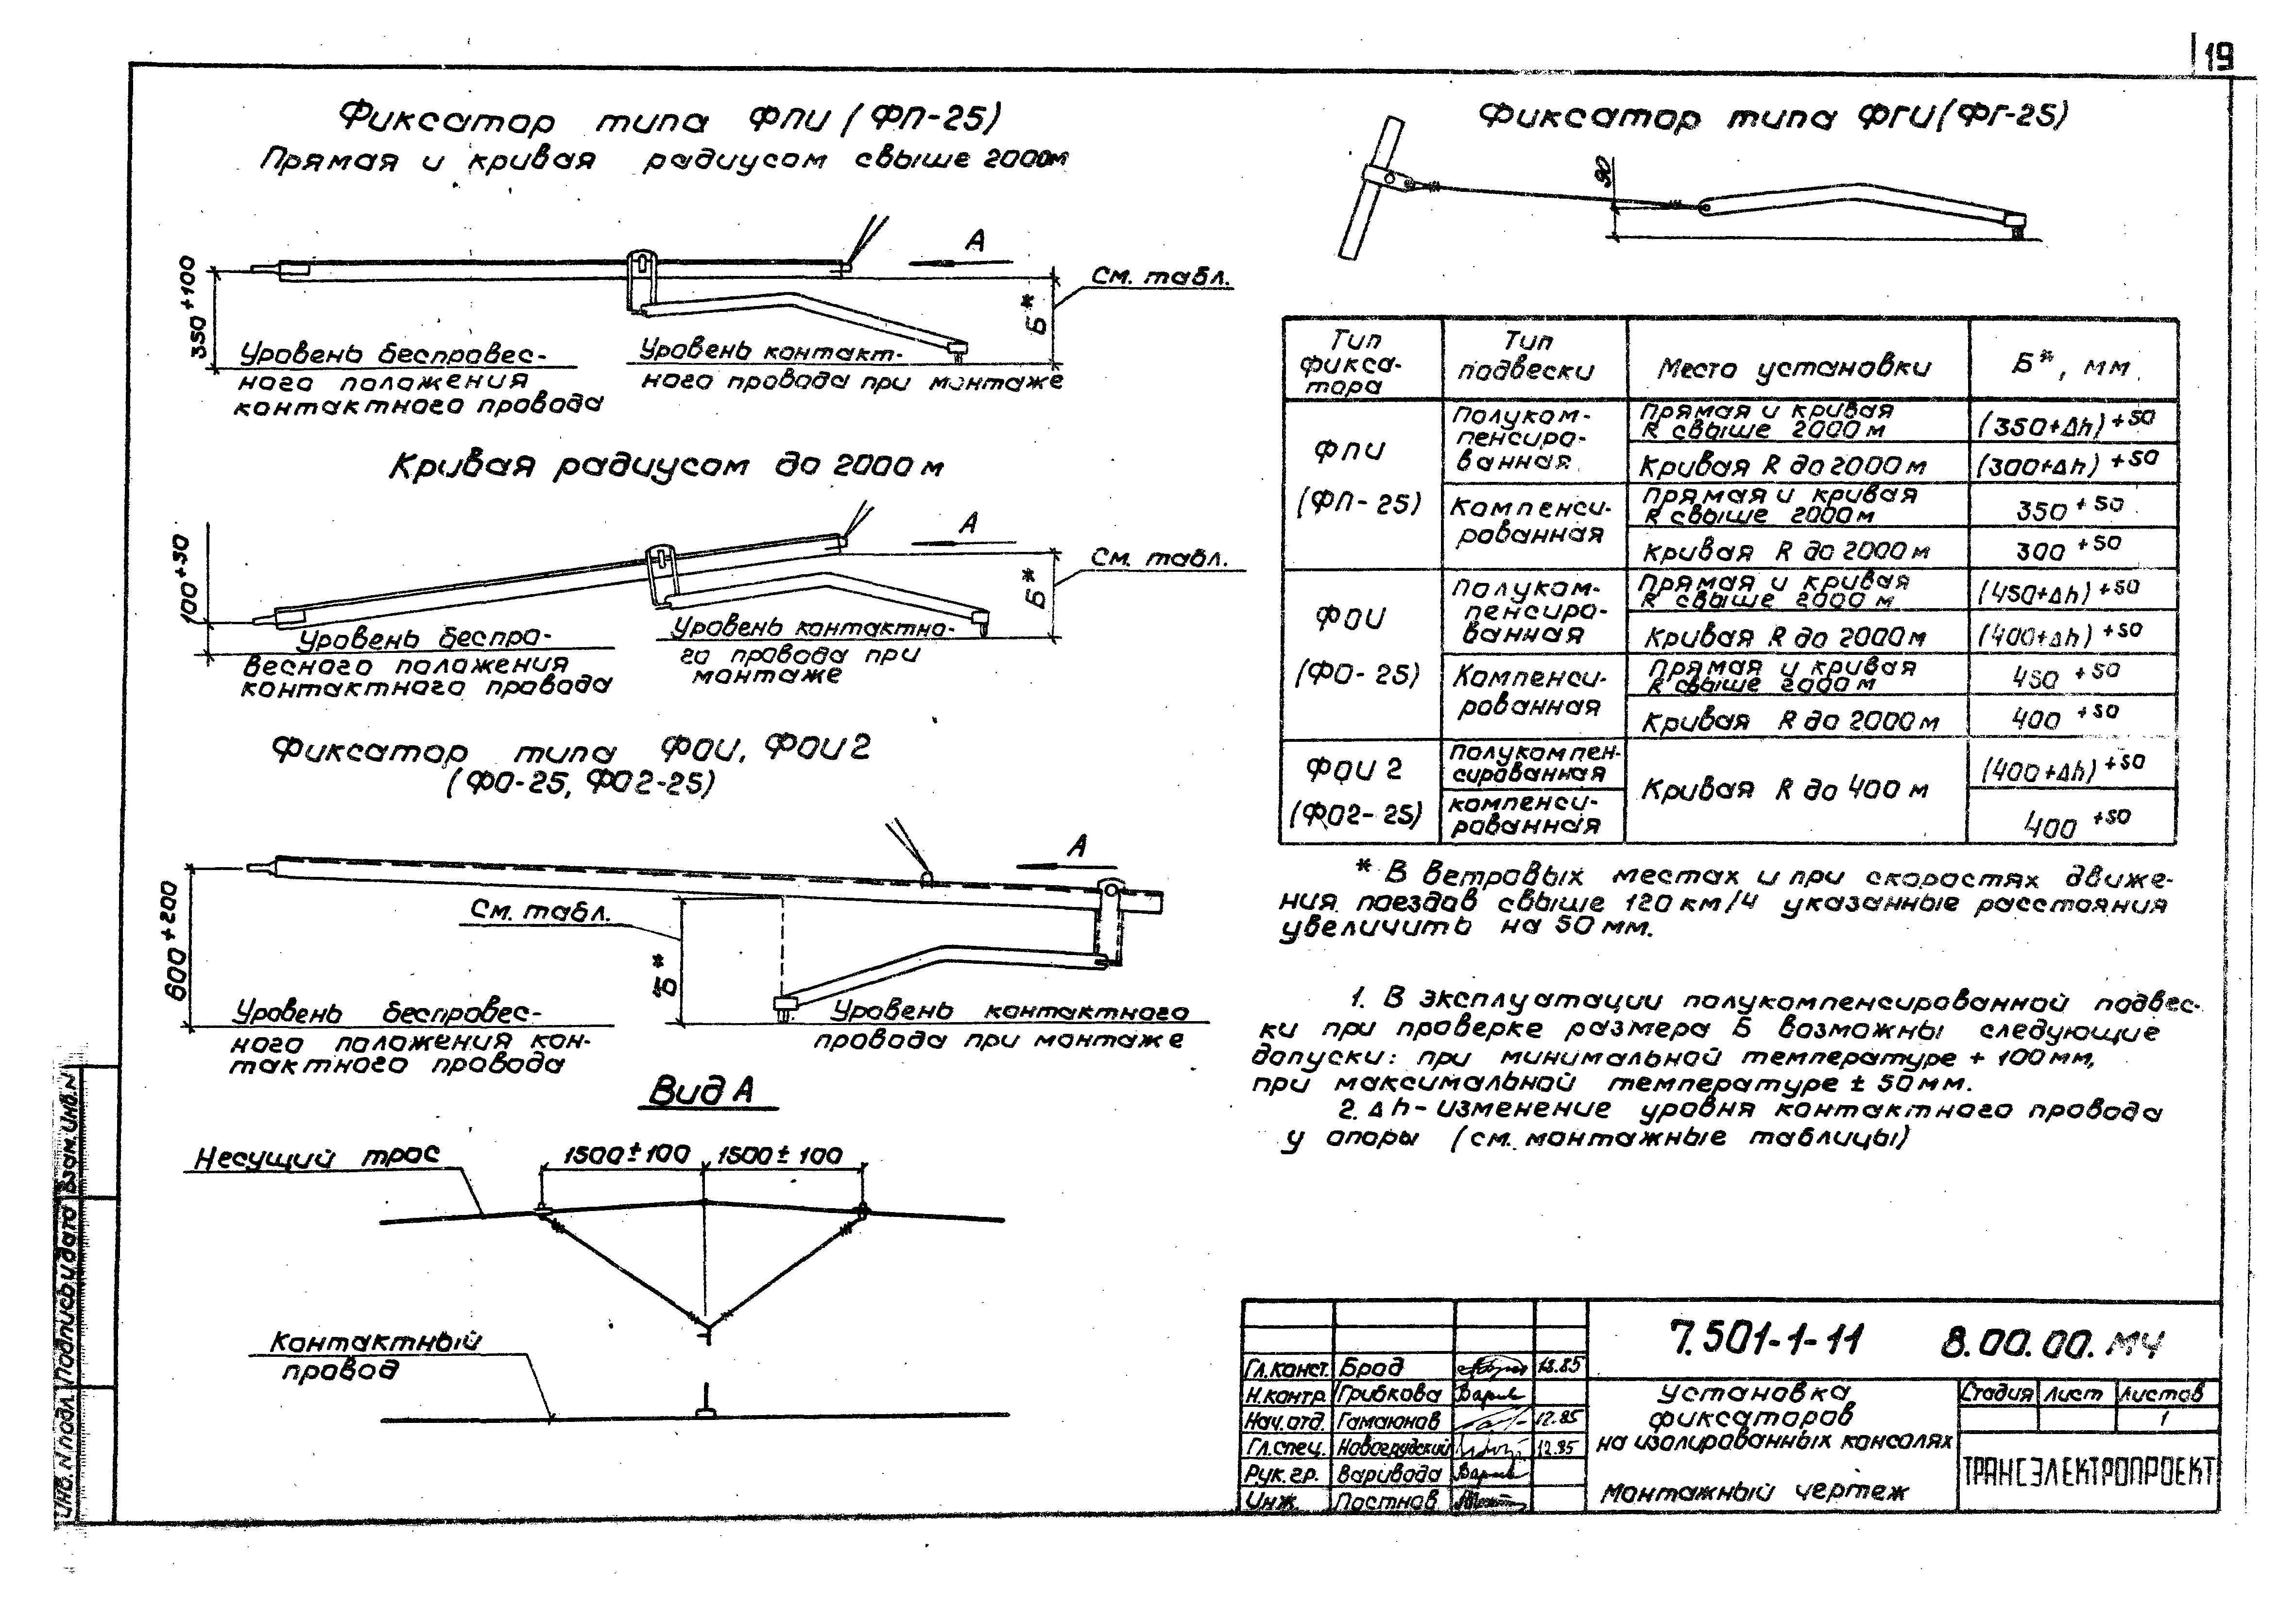 19
Фиксатор типа ФПИ (ФП-25)
Прямая и кривая радиусом свыше 2000м
А
См. табл.
350 +100
Б*
Уровень беспровес-
ного положения
контактного провода
Уровень контакт-
ного провода при монтаже
Кривая радиусом до 2000 м
А
См. табл.
100 +50
Б*
Уровень беспро-
весного положения
контактного провода
Уровень контактно-
го провода при
монтаже
Фиксатор типа ФОИ, ФОИ 2
(ФО-25, ФО2-25)
А
См. табл.
600 +200
Б*
Уровень беспровес-
ного положения кон-
тактного провода
Уровень контактного
провода при монтаже
Вид А
Несущий трос
1500±100 1500±100
Контактный
провод
Фиксатор типа ФГИ (ФГ-25)
90
Тип
фикса-
тора
Тип
подвески
Место установки
Б*, мм
ФПИ
(ФП-25)
Полуком-
пенсиро-
ванная
Прямая и кривая
R свыше 2000 м
(350+Δh) +50
Кривая R до 2000 м
(300+Δh) +50
Компенси-
рованная
Прямая и кривая
R свыше 2000 м
350 +50
Кривая R до 2000 м
300 +50
ФОИ
(ФО-25)
Полуком-
пенсиро-
ванная
Прямая и кривая
R свыше 2000 м
(450+Δh) +50
Кривая R до 2000 м
(400+Δh) +50
Компенси-
рованная
Прямая и кривая
R свыше 2000 м
450 +50
Кривая R до 2000 м
400 +50
ФОИ 2
(ФО2-25)
Полукомпен-
сированная
Кривая R до 400 м
(400+Δh) +50
компенси-
рованная
400 +50
* В ветровых местах и при скоростях движе-
ния поездов свыше 120 км/ч указанные расстояния
увеличить на 50 мм.
1. В эксплуатации полукомпенсированной подвес-
ки при проверке размера Б возможны следующие
допуски: при минимальной температуре + 100 мм,
при максимальной температуре ± 50 мм.
2. Δh - изменение уровня контактного провода
у опоры (см. монтажные таблицы)
7.501-1-11 8.00.00. МЧ
Гл.конст. Брод 12.85
Н.контр. Грибкова
Нач.отд. Гамаюнов 12.85
Гл.спец. Новогрудский 12.85
Рук.гр. Варивода
Инж. Постнов
Установка
фиксаторов
на изолированных консолях
Монтажный чертеж
Стадия Лист Листов
1
ТРАНСЭЛЕКТРОПРОЕКТ
Инв. N подл. Подпись и дата Взам. инв. N